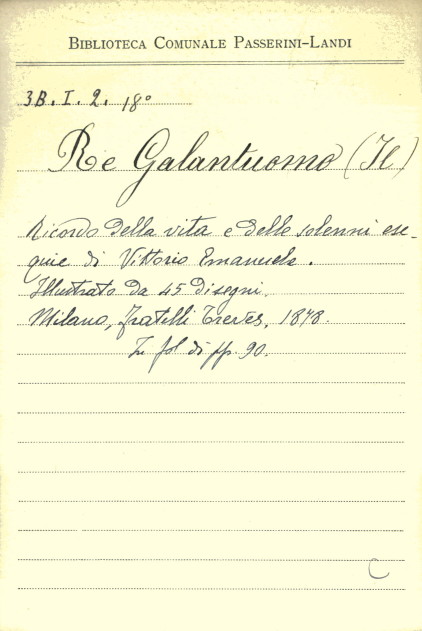 BIBLIOTECA COMUNALE PASSERINI-LANDI
3B. I. 2. 18°
Re Galantuomo (Il)
Ricordo della vita e delle solenni ese-
quie di Vittorio Emanuele.
Illustrato da 45 disegni.
Milano, Fratelli Treves, 1878.
In fol di pp. 90.
C